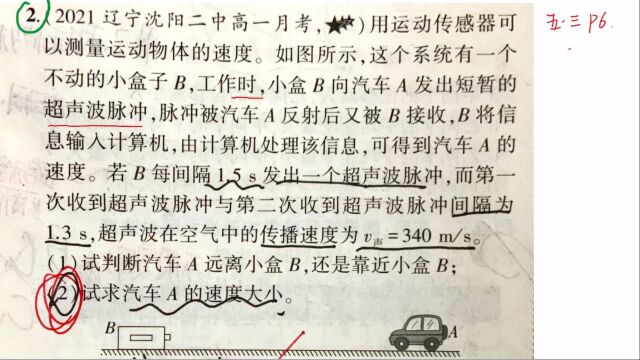 2.(2021 辽宁沈阳二中高一月考,★★)用运动传感器可
以测量运动物体的速度。如图所示,这个系统有一个
不动的小盒子 B,工作时,小盒 B 向汽车 A 发出短暂的
超声波脉冲,脉冲被汽车 A 反射后又被 B 接收,B 将信
息输入计算机,由计算机处理该信息,可得到汽车 A 的
速度。若 B 每间隔 1.5 s 发出一个超声波脉冲,而第一
次收到超声波脉冲与第二次收到超声波脉冲间隔为
1.3 s,超声波在空气中的传播速度为 v声=340 m/s。
(1)试判断汽车 A 远离小盒 B,还是靠近小盒 B;
(2)试求汽车 A 的速度大小。
B
A
五·三 P6.